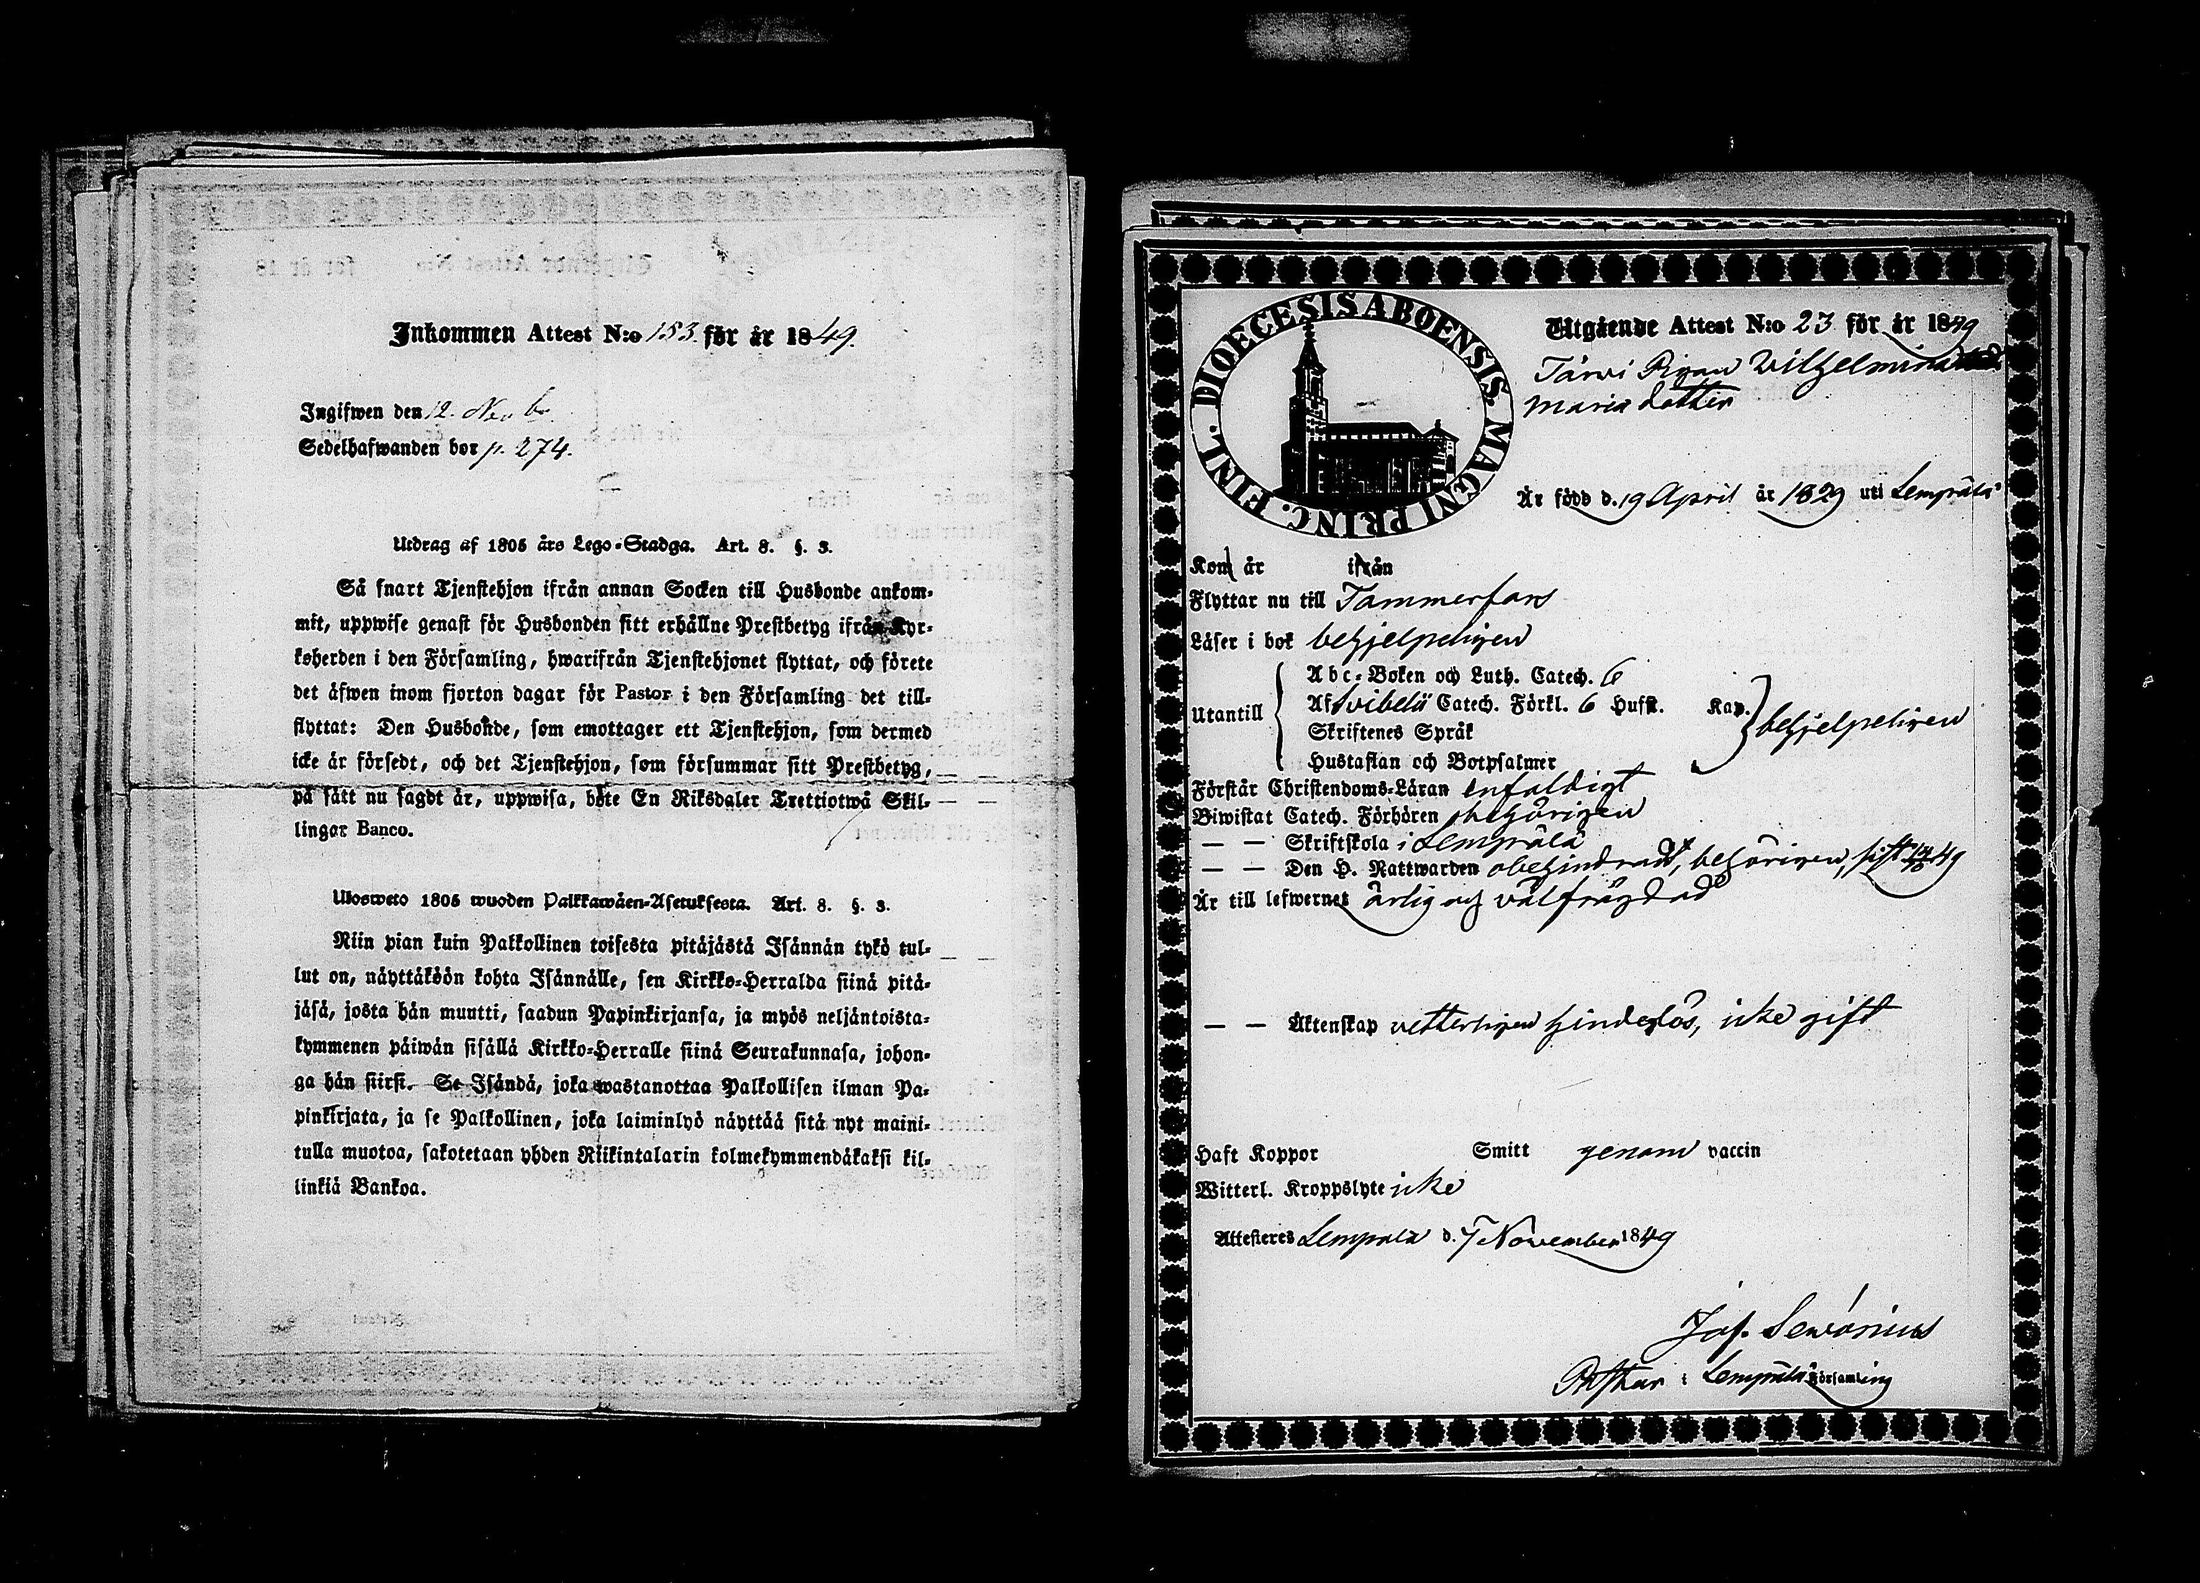 Inkommen Attest N:o 153 för år 1849.
Ingifwen den 12. Novbr
Sedelhafwanden bor p. 274.
Utdrag af 1805 års Lego-Stadga. Art. 8. §. 3.
Så snart Tjenstehjon ifrån annan Socken till Husbonde ankom-
mit, uppwise genast för Husbonden sitt erhållne Prestbetyg ifrån Kyr-
koherden i den Församling, hwarifrån Tjenstehjonet flyttat, och förete
det äfwen inom fjorton dagar för Pastor i den Församling det till-
flyttat: Den Husbonde, som emottager ett Tjenstehjon, som dermed
icke är försedt, och det Tjenstehjon, som försummar sitt Prestbetyg,
på sätt nu sagdt är, uppwisa, böte En Riksdaler Trettiotwå Skil-
lingar Banco.
Ulosweto 1805 wuoden Palkkawäen-Asetuksesta. Art. 8. §. 3.
Niin pian kuin Palkollinen toisesta pitäjästä Isännän tykö tul-
lut on, näyttäköön kohta Isännälle, sen Kirkko-Herralda siinä pitä-
jäsä, josta hän muutti, saadun Papinkirjansa, ja myös neljäntoista-
kymmenen päiwän sisällä Kirkko-Herralle siinä Seurakunnasa, johon-
ga hän siirsi. Se Isändä, joka wastanottaa Palkollisen ilman Pa-
pinkirjata, ja se Palkollinen, joka laiminlyö näyttää sitä nyt maini-
tulla muotoa, sakotetaan yhden Riikintalarin kolmekymmendäkaksi kil-
linkiä Bankoa.
DIOECESIS ABOENSIS. MAGNI PRINC. FINL.
Utgående Attest N:o 23 för år 1849
Järvi Pigan Wilhelmina
Maria dotter
Är född d. 19 April år 1829 uti Lempälä
Kom år ifrån
Flyttar nu till Tammerfors
Läser i bok behjelpeligen
Utantill
Abc-Boken och Luth. Catech. 6
Af Svibelii Catech. Förkl. 6 Hufst. Kap.
Skriftenes Språk
Hustaflan och Botpsalmer
behjelpeligen
Förstår Christendoms-Läran enfaldigt
Biwistat Catech. Förhören behörigen
— — Skriftskola i Lempälä
— — Den H. Nattwarden obehindrad, behörigen, sist 49
Är till lefwernet ärlig och välfrägdad
— — Äktenskap vetterligen hinderlös, icke gift
Haft Koppor Smitt genom vaccin
Witterl. Kroppslyte icke
Attesteres Lempälä d. 7 November 1849
Jos. Sevonius
Pastor i Lempälä Församling